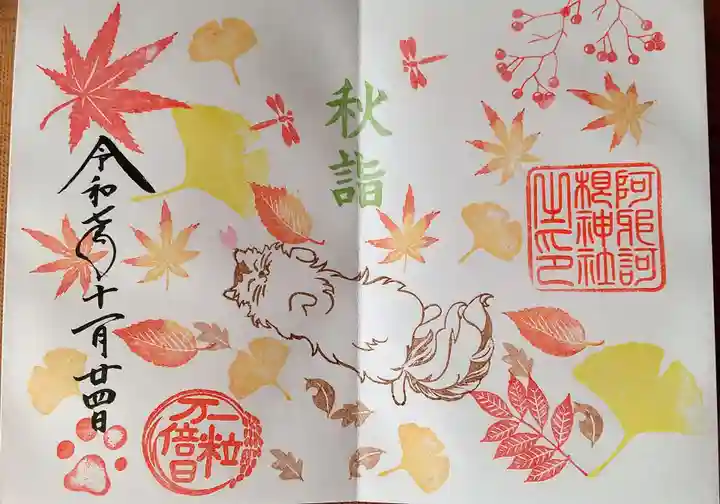 阿邪訶
根神社
之印
秋詣
令和七年十一月廿四日
一粒
万倍日